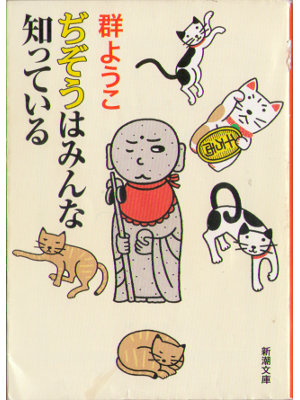 群ようこ
ぢぞうはみんな
知っている
新潮文庫